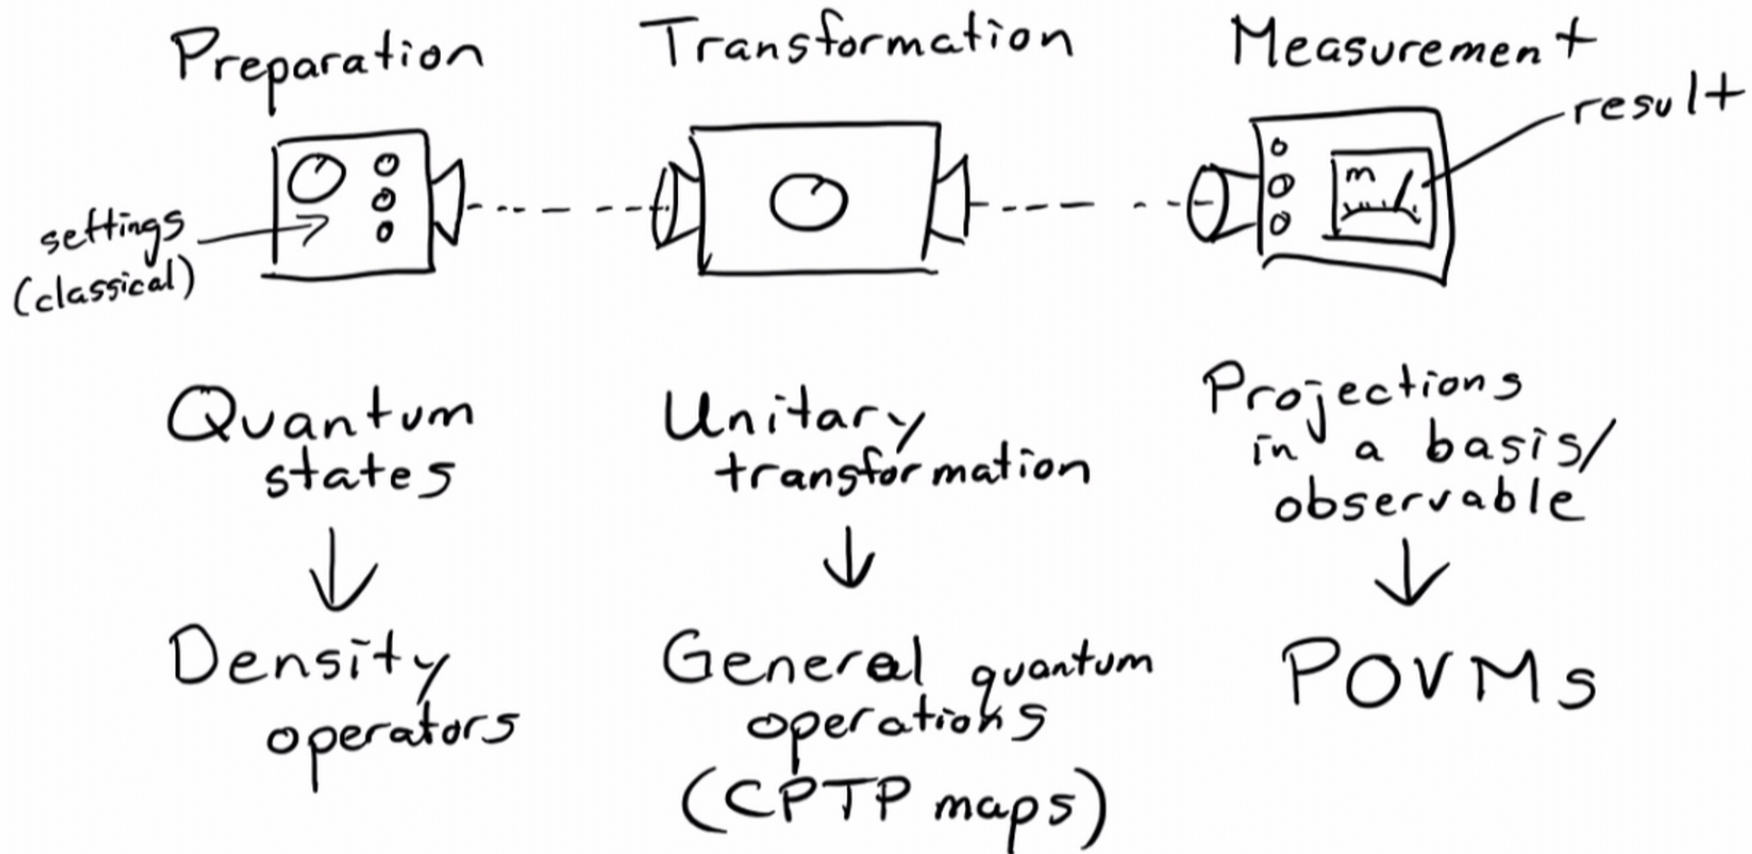 Preparation
Transformation
Measurement
result
m
settings
(classical)
Quantum
states
Unitary
transformation
Projections
in a basis/
observable
Density
operators
General quantum
operations
(CPTP maps)
POVMs